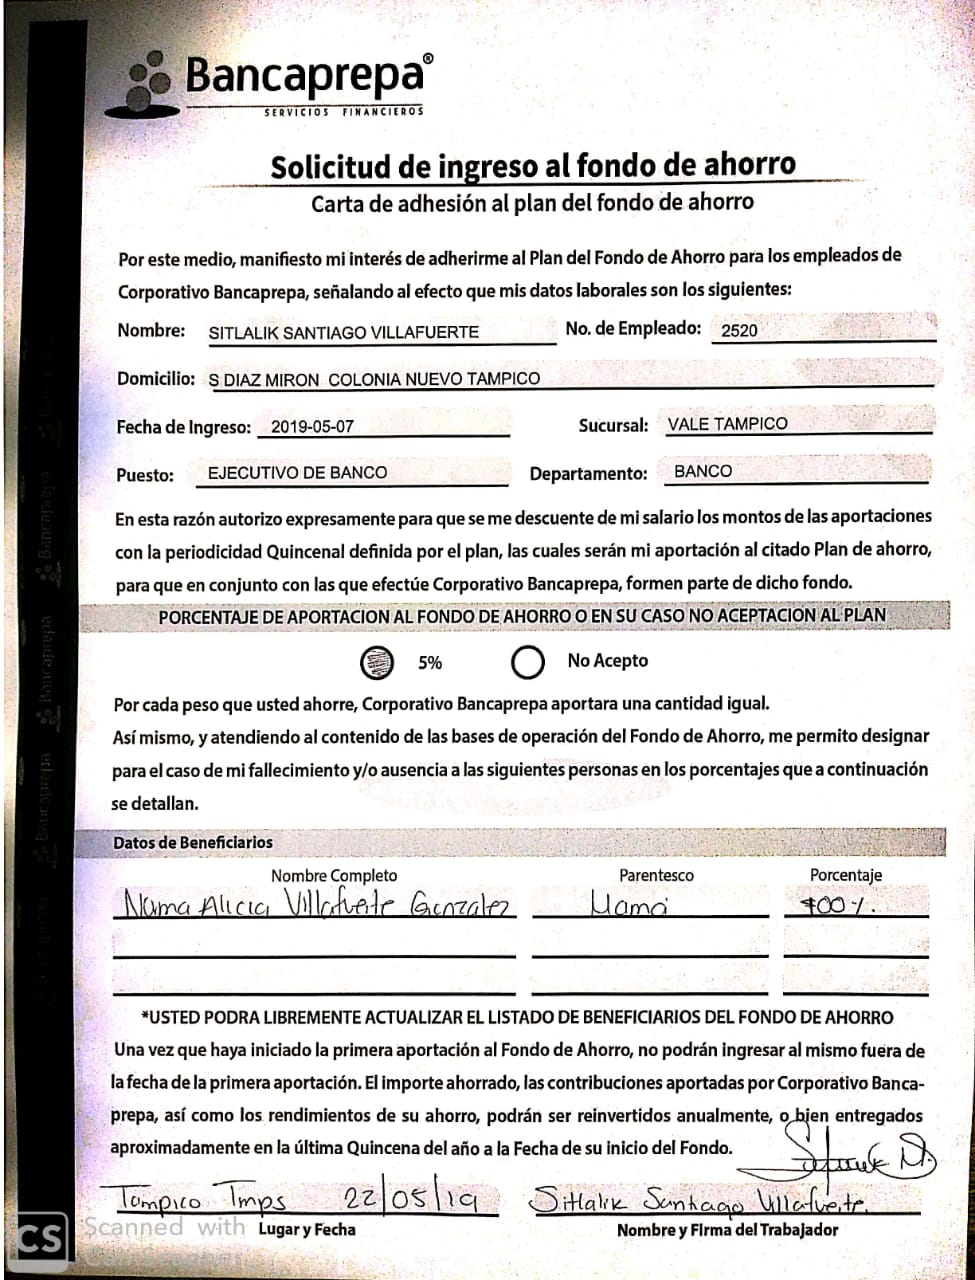 Bancaprepa®
SERVICIOS FINANCIEROS
Solicitud de ingreso al fondo de ahorro
Carta de adhesión al plan del fondo de ahorro
Por este medio, manifiesto mi interés de adherirme al Plan del Fondo de Ahorro para los empleados de
Corporativo Bancaprepa, señalando al efecto que mis datos laborales son los siguientes:
Nombre: SITLALIK SANTIAGO VILLAFUERTE No. de Empleado: 2520
Domicilio: S DIAZ MIRON COLONIA NUEVO TAMPICO
Fecha de Ingreso: 2019-05-07 Sucursal: VALE TAMPICO
Puesto: EJECUTIVO DE BANCO Departamento: BANCO
En esta razón autorizo expresamente para que se me descuente de mi salario los montos de las aportaciones
con la periodicidad Quincenal definida por el plan, las cuales serán mi aportación al citado Plan de ahorro,
para que en conjunto con las que efectúe Corporativo Bancaprepa, formen parte de dicho fondo.
PORCENTAJE DE APORTACION AL FONDO DE AHORRO O EN SU CASO NO ACEPTACION AL PLAN
5% No Acepto
Por cada peso que usted ahorre, Corporativo Bancaprepa aportara una cantidad igual.
Así mismo, y atendiendo al contenido de las bases de operación del Fondo de Ahorro, me permito designar
para el caso de mi fallecimiento y/o ausencia a las siguientes personas en los porcentajes que a continuación
se detallan.
Datos de Beneficiarios
Nombre Completo Parentesco Porcentaje
Alicia Villafuerte Gonzalez Mamá 100%.
*USTED PODRA LIBREMENTE ACTUALIZAR EL LISTADO DE BENEFICIARIOS DEL FONDO DE AHORRO
Una vez que haya iniciado la primera aportación al Fondo de Ahorro, no podrán ingresar al mismo fuera de
la fecha de la primera aportación. El importe ahorrado, las contribuciones aportadas por Corporativo Banca-
prepa, así como los rendimientos de su ahorro, podrán ser reinvertidos anualmente, o bien entregados
aproximadamente en la última Quincena del año a la Fecha de su inicio del Fondo.
Tampico Tmps 22/05/19 Sitlalik Santiago Villafuerte.
Lugar y Fecha Nombre y Firma del Trabajador
CS Scanned with
Bancaprepa
Bancaprepa
Bancaprepa